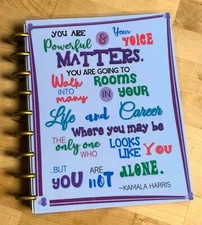 YOU ARE
Powerful & Your VOICE
MATTERS.
YOU ARE GOING TO
Walk ROOMS
INTO IN YOUR
many
Life and Career
Where you may be
THE only one WHO LOOKS LIKE YOU
...BUT YOU ARE NOT ALONE.
~KAMALA HARRIS